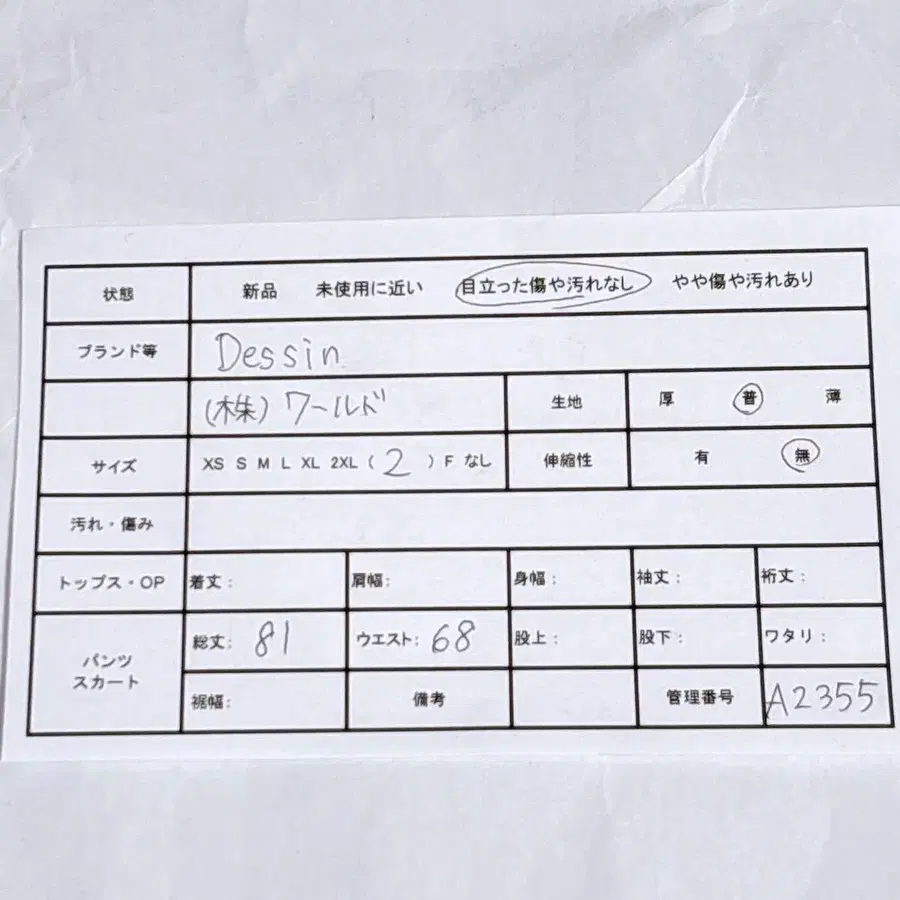 状態 新品 未使用に近い 目立った傷や汚れなし やや傷や汚れあり
ブランド等 Dessin
(株)ワールド 生地 厚 普 薄
サイズ XS S M L XL 2XL ( 2 ) F なし 伸縮性 有 無
汚れ・傷み
トップス・OP 着丈: 肩幅: 身幅: 袖丈: 裄丈:
パンツ スカート 総丈: 81 ウエスト: 68 股上: 股下: ワタリ:
裾幅: 備考 管理番号 A2355